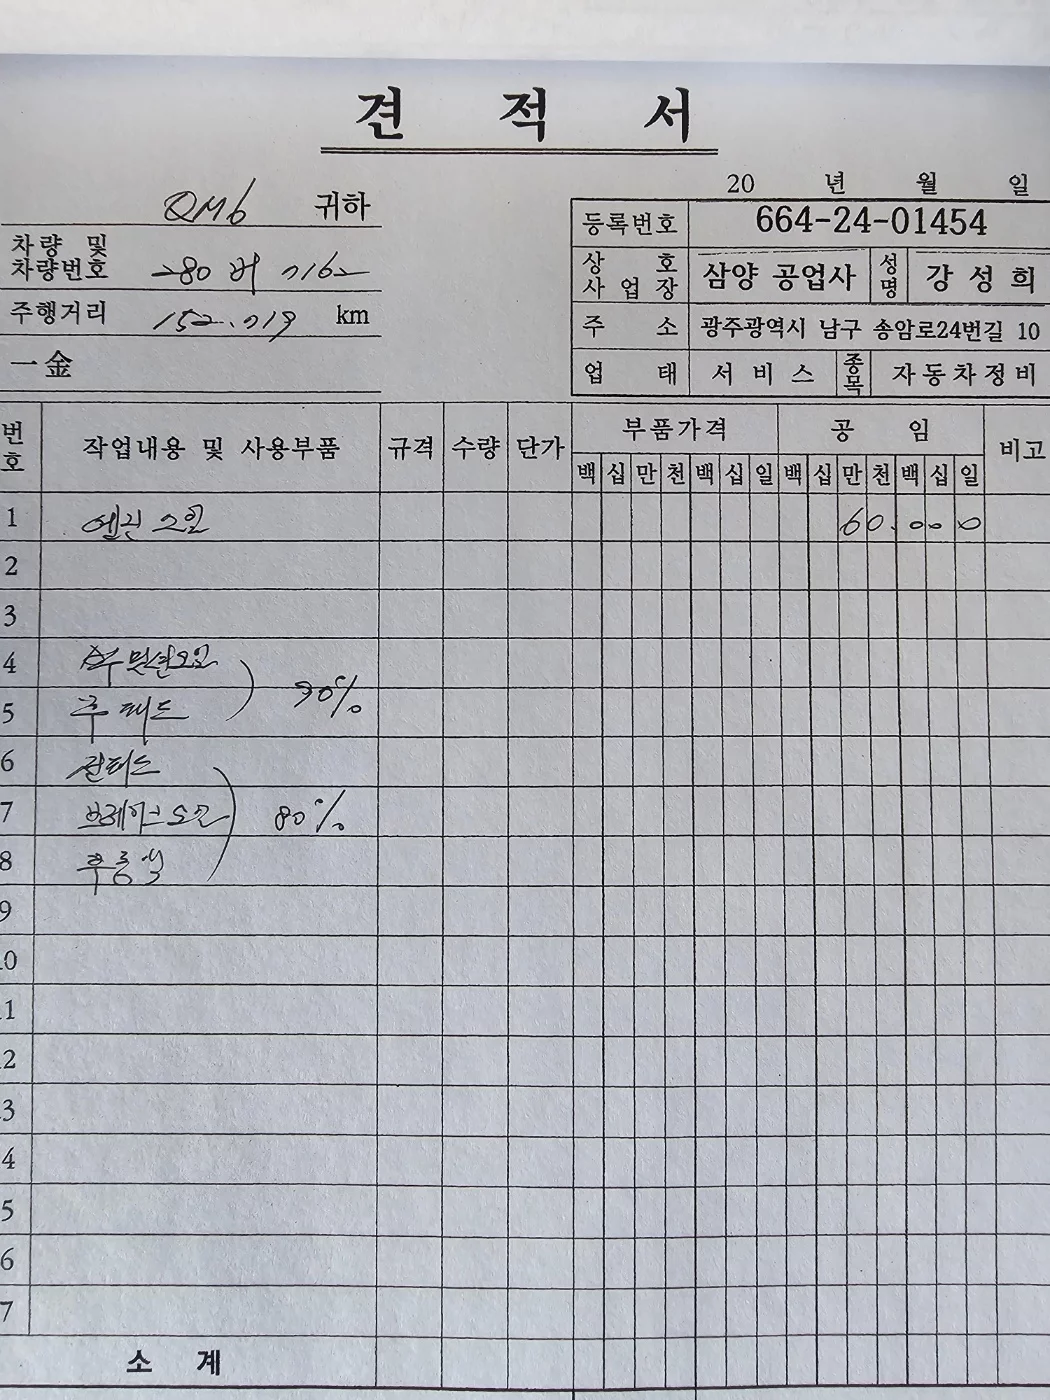 견 적 서
QM6 귀하
20 년 월 일
차량 및
차량번호
주행거리 152.719 km
一金
등록번호 664-24-01454
상 호
사 업 장
삼양 공업사
성
명
강 성 희
주 소 광주광역시 남구 송암로24번길 10
업 태 서 비 스
종
목
자 동 차 정 비
번
호
작업내용 및 사용부품 규격 수량 단가 부품가격 공 임 비고
백 십 만 천 백 십 일 백 십 만 천 백 십 일
1 엔진오일 60.000
2
3
4 미션오일
5 후 패드 90%
6 라이닝
7 브레이크오일 80%
8
9
10
11
12
13
14
15
16
17
소 계